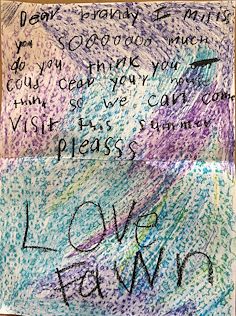 Dear brandy I Miss
you SO8OOOOO much
do you think you
coud cear your house
thing so we can come
Visit this summer
pleasss
LOve
FaWn